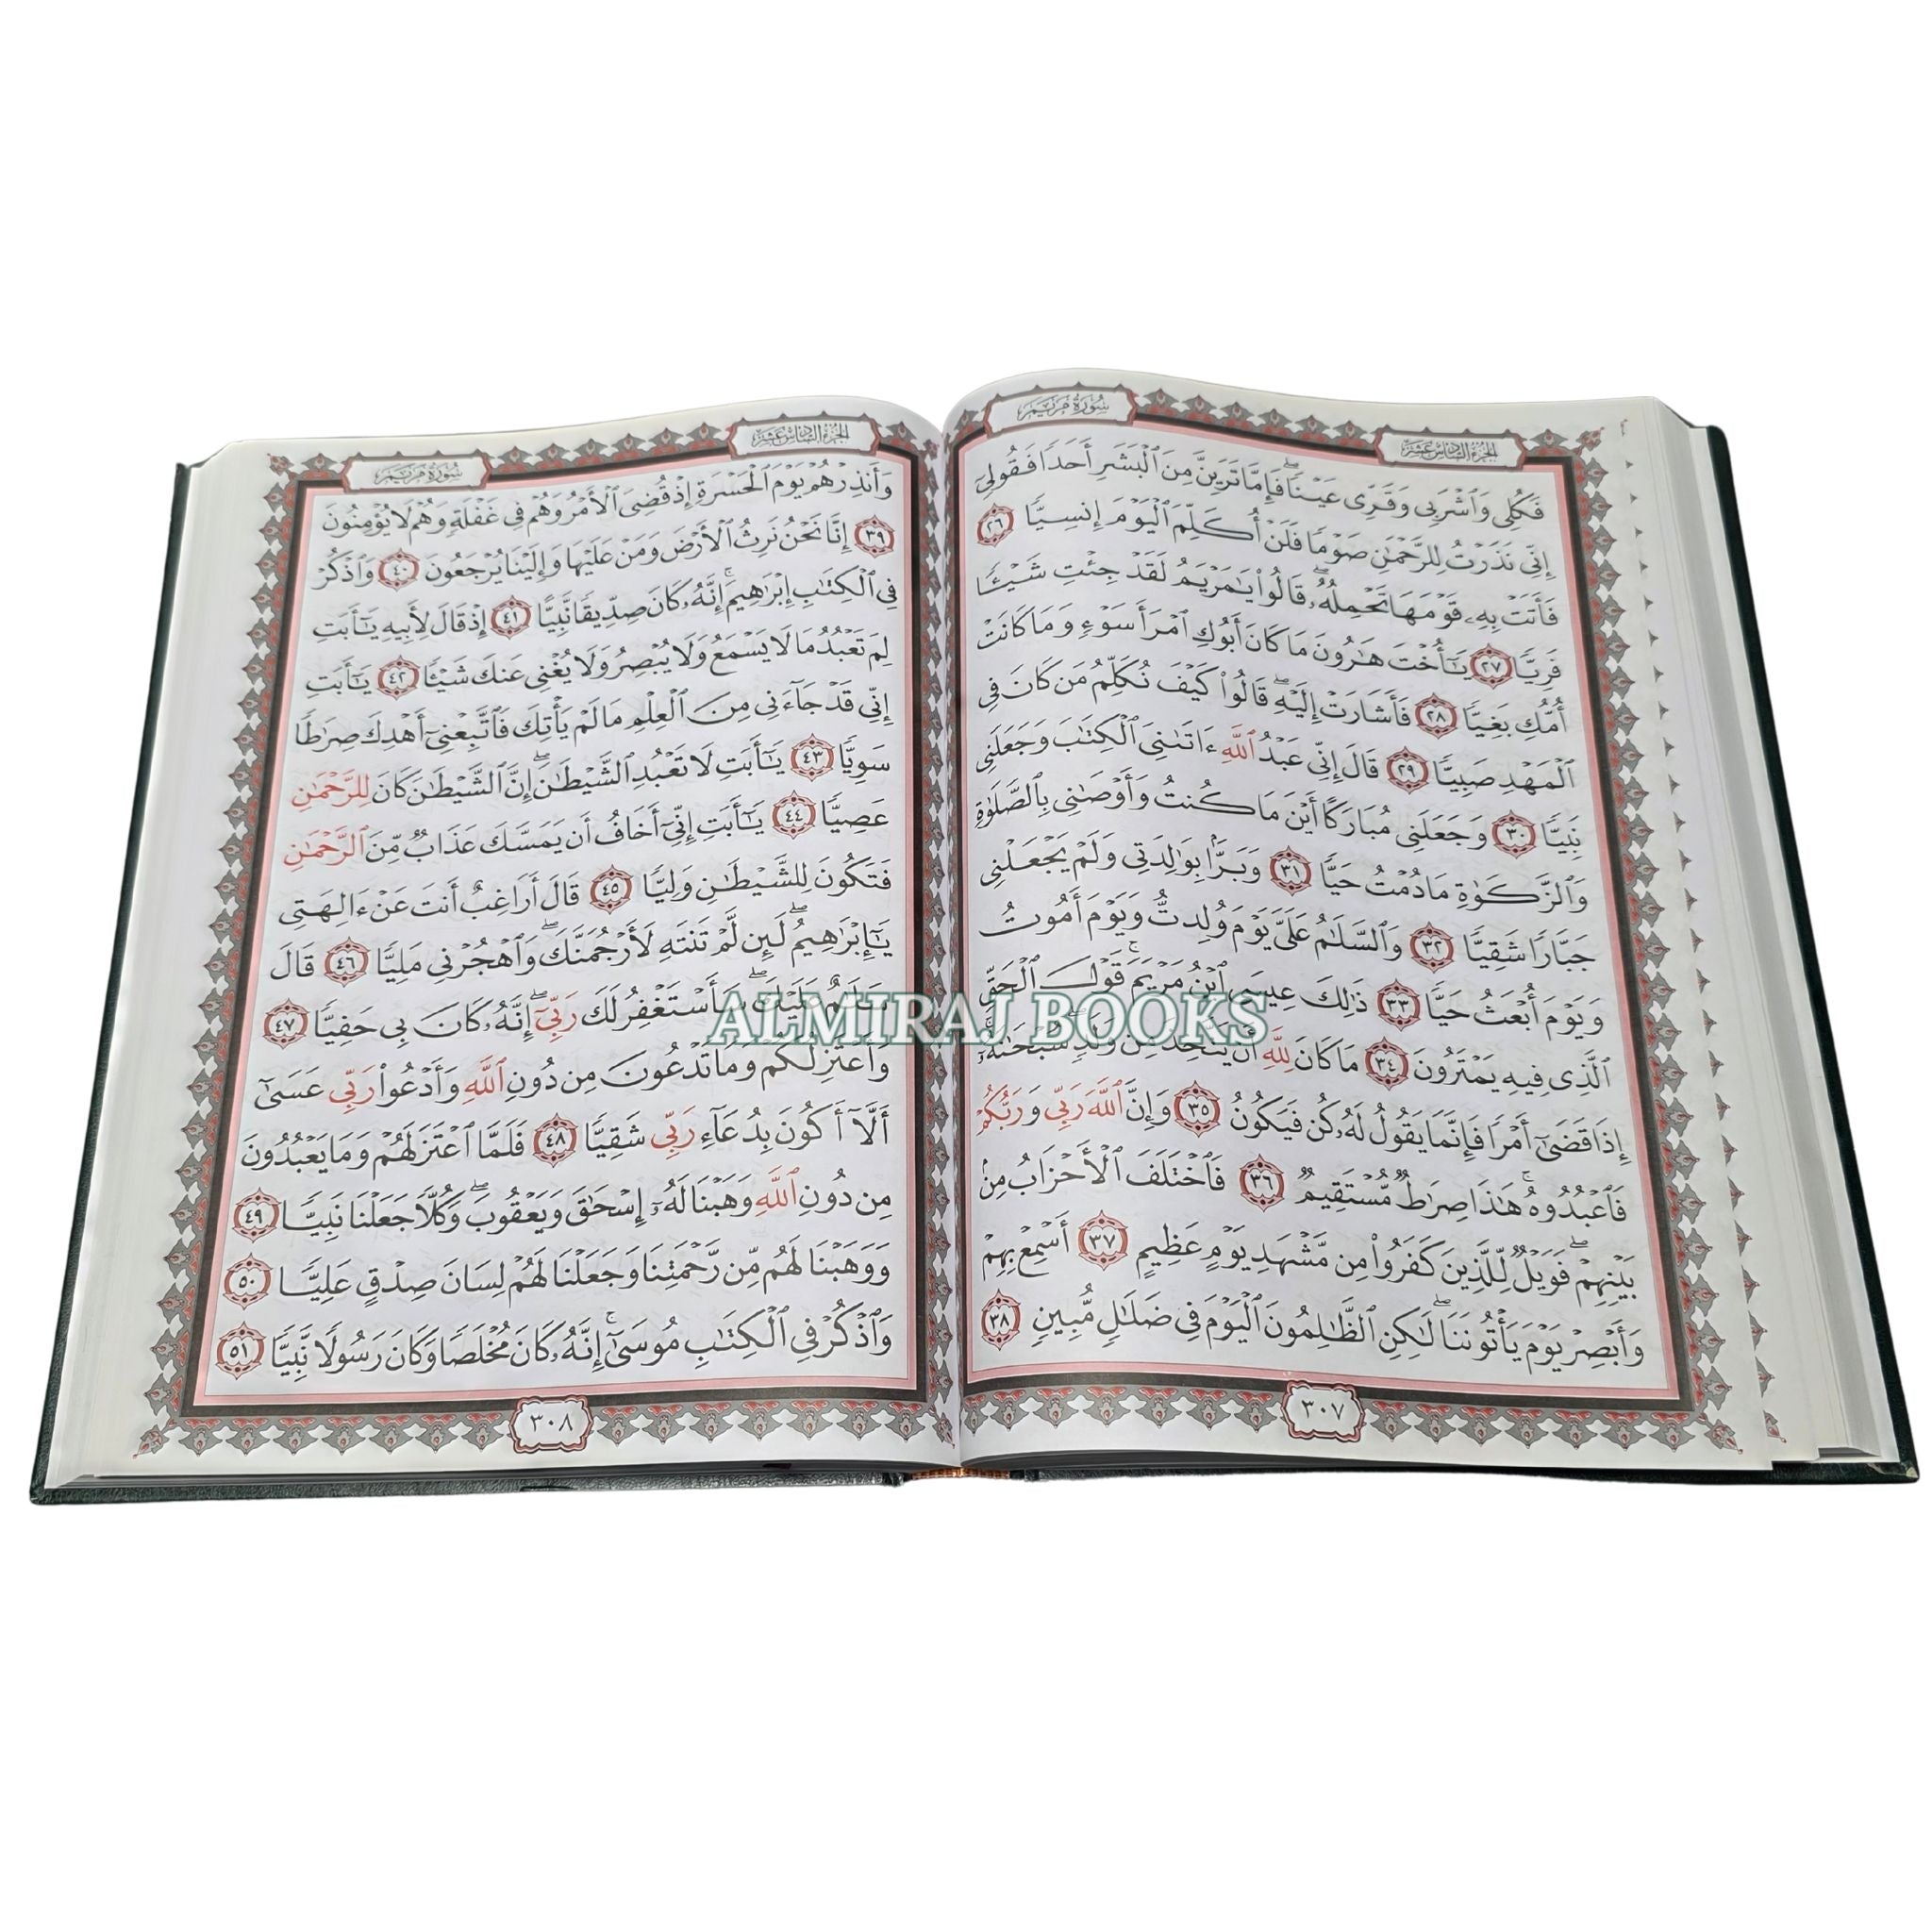 الجزء السادس عشر
سورة مريم
فَكُلِى وَٱشْرَبِى وَقَرِّى عَيْنًاۖ فَإِمَّا تَرَيِنَّ مِنَ ٱلْبَشَرِ أَحَدًا فَقُولِىٓ
إِنِّى نَذَرْتُ لِلرَّحْمَٰنِ صَوْمًا فَلَنْ أُكَلِّمَ ٱلْيَوْمَ إِنسِيًّا ٢٦
فَأَتَتْ بِهِۦ قَوْمَهَا تَحْمِلُهُۥۖ قَالُوا۟ يَٰمَرْيَمُ لَقَدْ جِئْتِ شَيْـًٔا
فَرِيًّا ٢٧ يَٰٓأُخْتَ هَٰرُونَ مَا كَانَ أَبُوكِ ٱمْرَأَ سَوْءٍ وَمَا كَانَتْ
أُمُّكِ بَغِيًّا ٢٨ فَأَشَارَتْ إِلَيْهِۖ قَالُوا۟ كَيْفَ نُكَلِّمُ مَن كَانَ فِى
ٱلْمَهْدِ صَبِيًّا ٢٩ قَالَ إِنِّى عَبْدُ ٱللَّهِ ءَاتَىٰنِىَ ٱلْكِتَٰبَ وَجَعَلَنِى
نَبِيًّا ٣٠ وَجَعَلَنِى مُبَارَكًا أَيْنَ مَا كُنتُ وَأَوْصَٰنِى بِٱلصَّلَوٰةِ
وَٱلزَّكَوٰةِ مَا دُمْتُ حَيًّا ٣١ وَبَرًّۢا بِوَٰلِدَتِى وَلَمْ يَجْعَلْنِى
جَبَّارًا شَقِيًّا ٣٢ وَٱلسَّلَٰمُ عَلَىَّ يَوْمَ وُلِدتُّ وَيَوْمَ أَمُوتُ
وَيَوْمَ أُبْعَثُ حَيًّا ٣٣ ذَٰلِكَ عِيسَى ٱبْنُ مَرْيَمَۚ قَوْلَ ٱلْحَقِّ
ٱلَّذِى فِيهِ يَمْتَرُونَ ٣٤ مَا كَانَ لِلَّهِ أَن يَتَّخِذَ مِن وَلَدٍۖ سُبْحَٰنَهُۥٓۚ
إِذَا قَضَىٰٓ أَمْرًا فَإِنَّمَا يَقُولُ لَهُۥ كُن فَيَكُونُ ٣٥ وَإِنَّ ٱللَّهَ رَبِّى وَرَبُّكُمْ
فَٱعْبُدُوهُۚ هَٰذَا صِرَٰطٌ مُّسْتَقِيمٌ ٣٦ فَٱخْتَلَفَ ٱلْأَحْزَابُ مِنۢ
بَيْنِهِمْۖ فَوَيْلٌ لِّلَّذِينَ كَفَرُوا۟ مِن مَّشْهَدِ يَوْمٍ عَظِيمٍ ٣٧ أَسْمِعْ بِهِمْ
وَأَبْصِرْ يَوْمَ يَأْتُونَنَاۖ لَٰكِنِ ٱلظَّٰلِمُونَ ٱلْيَوْمَ فِى ضَلَٰلٍ مُّبِينٍ ٣٨
٣٠٧
الجزء السادس عشر
سورة مريم
وَأَنذِرْهُمْ يَوْمَ ٱلْحَسْرَةِ إِذْ قُضِىَ ٱلْأَمْرُ وَهُمْ فِى غَفْلَةٍ وَهُمْ لَا يُؤْمِنُونَ
٣٩ إِنَّا نَحْنُ نَرِثُ ٱلْأَرْضَ وَمَنْ عَلَيْهَا وَإِلَيْنَا يُرْجَعُونَ ٤٠ وَٱذْكُرْ
فِى ٱلْكِتَٰبِ إِبْرَٰهِيمَۚ إِنَّهُۥ كَانَ صِدِّيقًا نَّبِيًّا ٤١ إِذْ قَالَ لِأَبِيهِ يَٰٓأَبَتِ
لِمَ تَعْبُدُ مَا لَا يَسْمَعُ وَلَا يُبْصِرُ وَلَا يُغْنِى عَنكَ شَيْـًٔا ٤٢ يَٰٓأَبَتِ
إِنِّى قَدْ جَآءَنِى مِنَ ٱلْعِلْمِ مَا لَمْ يَأْتِكَ فَٱتَّبِعْنِىٓ أَهْدِكَ صِرَٰطًا
سَوِيًّا ٤٣ يَٰٓأَبَتِ لَا تَعْبُدِ ٱلشَّيْطَٰنَۖ إِنَّ ٱلشَّيْطَٰنَ كَانَ لِلرَّحْمَٰنِ
عَصِيًّا ٤٤ يَٰٓأَبَتِ إِنِّىٓ أَخَافُ أَن يَمَسَّكَ عَذَابٌ مِّنَ ٱلرَّحْمَٰنِ
فَتَكُونَ لِلشَّيْطَٰنِ وَلِيًّا ٤٥ قَالَ أَرَاغِبٌ أَنتَ عَنْ ءَالِهَتِى
يَٰٓإِبْرَٰهِيمُۖ لَئِن لَّمْ تَنتَهِ لَأَرْجُمَنَّكَۖ وَٱهْجُرْنِى مَلِيًّا ٤٦ قَالَ
سَلَٰمٌ عَلَيْكَۖ سَأَسْتَغْفِرُ لَكَ رَبِّىٓۖ إِنَّهُۥ كَانَ بِى حَفِيًّا ٤٧
وَأَعْتَزِلُكُمْ وَمَا تَدْعُونَ مِن دُونِ ٱللَّهِ وَأَدْعُوا۟ رَبِّى عَسَىٰٓ
أَلَّآ أَكُونَ بِدُعَآءِ رَبِّى شَقِيًّا ٤٨ فَلَمَّا ٱعْتَزَلَهُمْ وَمَا يَعْبُدُونَ
مِن دُونِ ٱللَّهِ وَهَبْنَا لَهُۥٓ إِسْحَٰقَ وَيَعْقُوبَۖ وَكُلًّا جَعَلْنَا نَبِيًّا ٤٩
وَوَهَبْنَا لَهُم مِّن رَّحْمَتِنَا وَجَعَلْنَا لَهُمْ لِسَانَ صِدْقٍ عَلِيًّا ٥٠
وَٱذْكُرْ فِى ٱلْكِتَٰبِ مُوسَىٰٓۚ إِنَّهُۥ كَانَ مُخْلَصًا وَكَانَ رَسُولًا نَّبِيًّا ٥١
٣٠٨
ALMIRAJ BOOKS